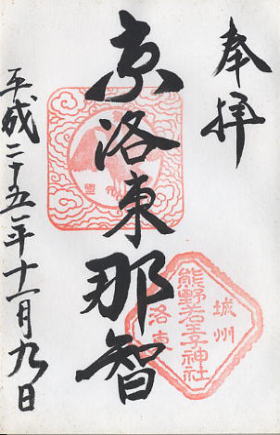 奉拝
京洛東那智
城州
熊野若王子神社
洛東
平成二十五年十一月九日